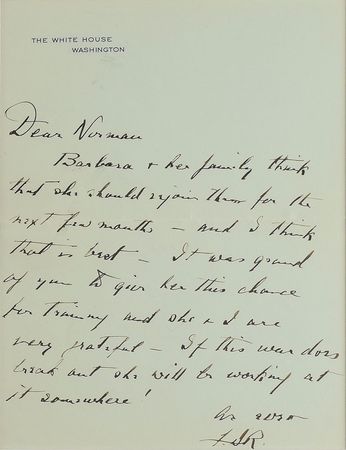 THE WHITE HOUSE
WASHINGTON
Dear Norman
Barbara & her family think
that she should rejoin them for the
next few months – and I think
that is best – It was grand
of you to give her this chance
for training and she & I are
very grateful – If this war does
break out she will be working at
it somewhere!
As ever
FDR.